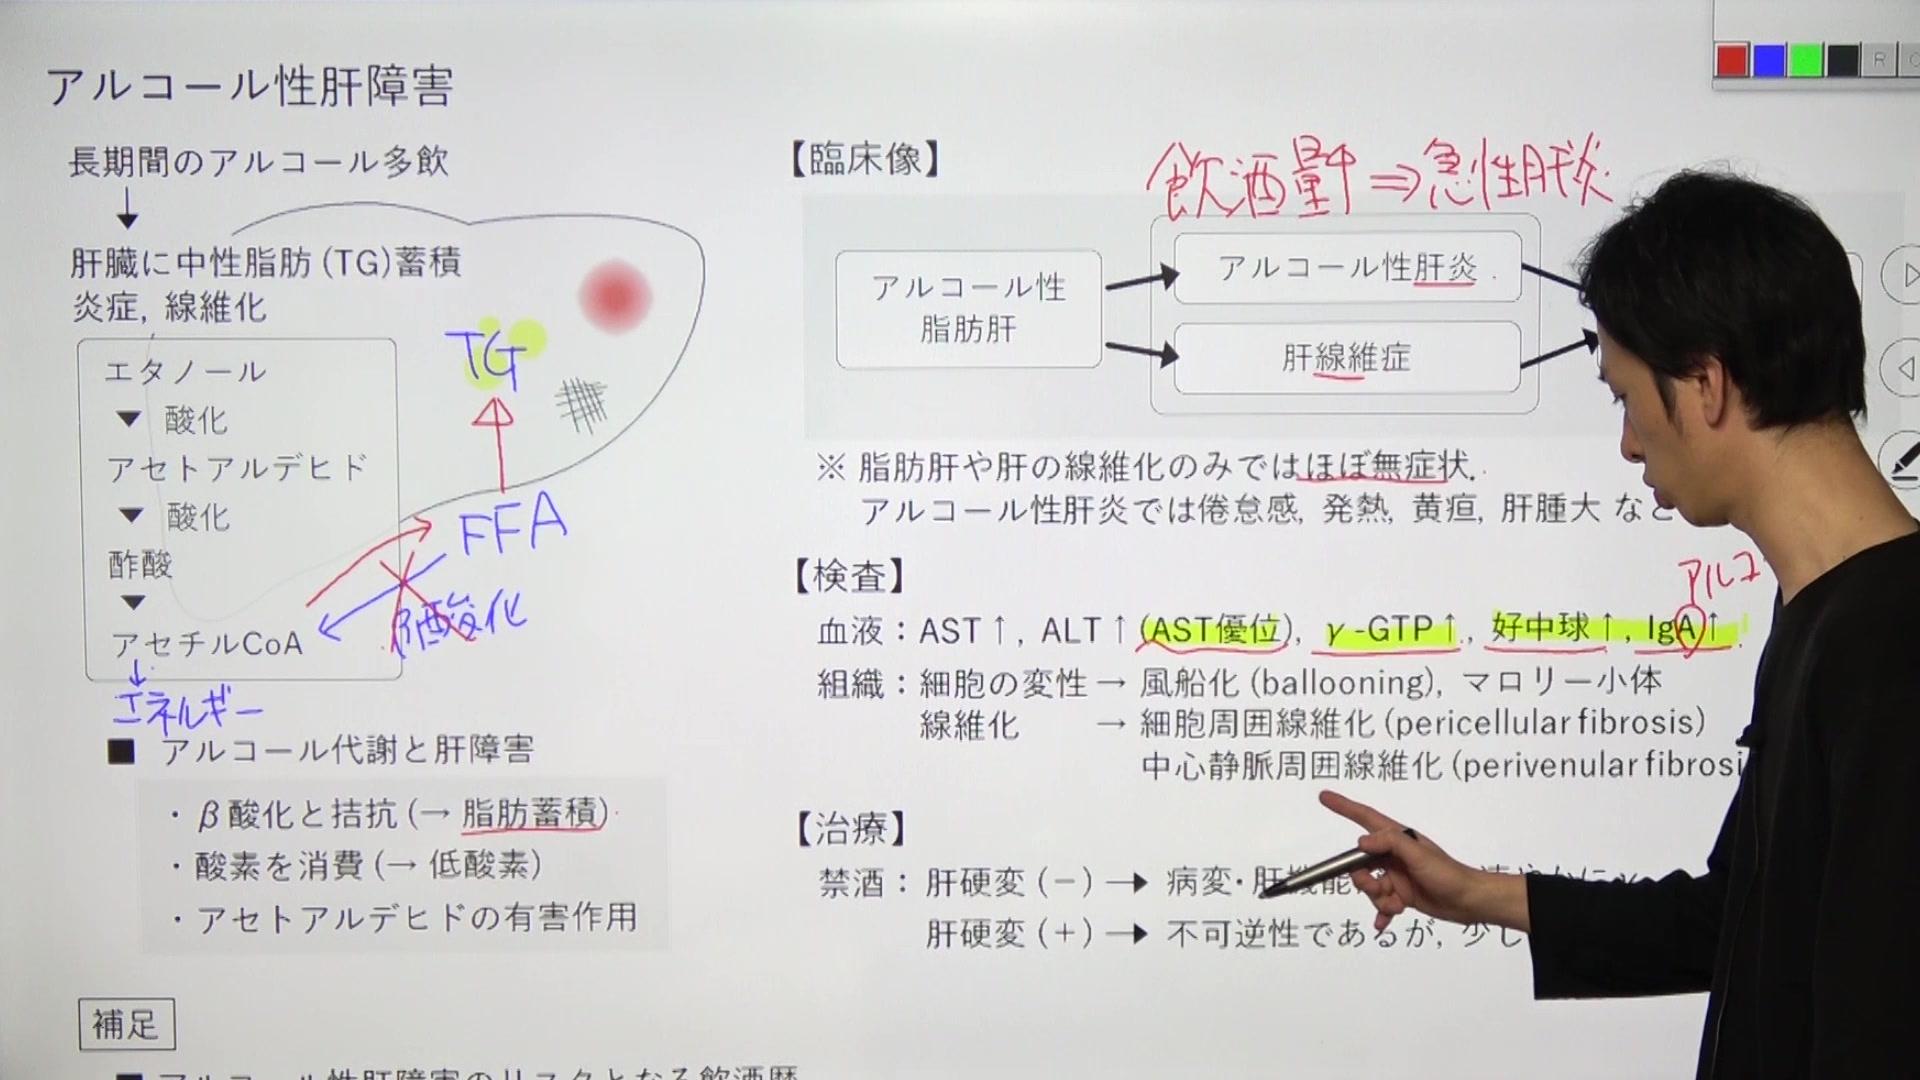 アルコール性肝障害
長期間のアルコール多飲
↓
肝臓に中性脂肪(TG)蓄積
炎症, 線維化
エタノール
▼ 酸化
アセトアルデヒド
▼ 酸化
酢酸
▼
アセチルCoA
↓
エネルギー
TG
FFA
β酸化
■ アルコール代謝と肝障害
・β酸化と拮抗(→ 脂肪蓄積)
・酸素を消費(→ 低酸素)
・アセトアルデヒドの有害作用
補足
■ アルコール性肝障害のリスクとなる飲酒歴
【臨床像】
飲酒量↑⇒急性肝炎
アルコール性
脂肪肝
アルコール性肝炎
肝線維症
※ 脂肪肝や肝の線維化のみではほぼ無症状.
アルコール性肝炎では倦怠感, 発熱, 黄疸, 肝腫大 など
【検査】
アルコ
血液：AST↑, ALT↑(AST優位), γ-GTP↑, 好中球↑, IgA↑
組織：細胞の変性→ 風船化(ballooning), マロリー小体
線維化 → 細胞周囲線維化(pericellular fibrosis)
中心静脈周囲線維化(perivenular fibrosi
【治療】
禁酒：肝硬変(－)→ 病変・肝機能
肝硬変(＋)→ 不可逆性であるが, 少し
R